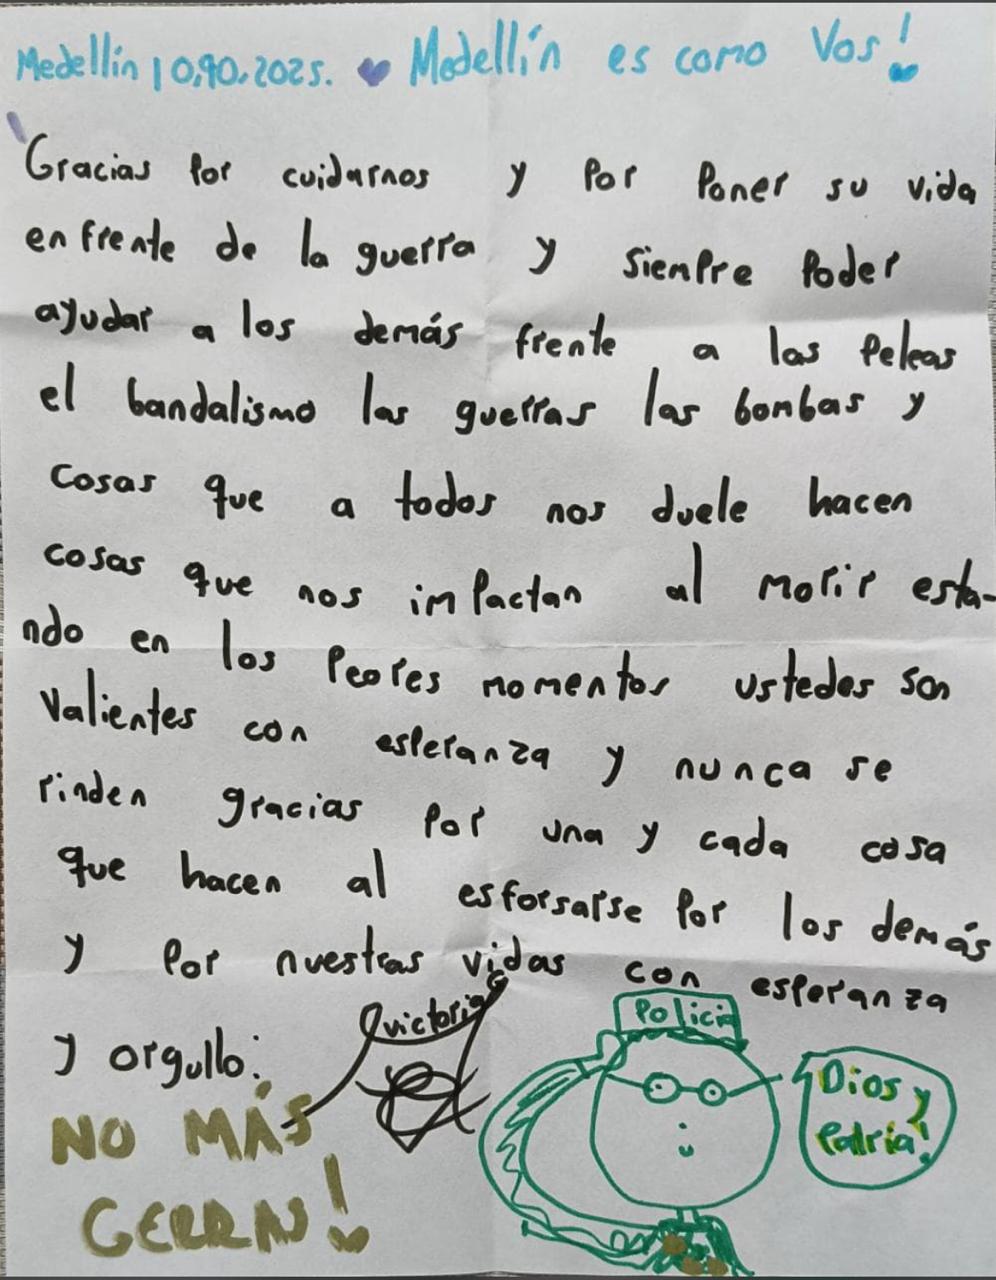 Medellín 10,90,2025. Medellín es como Vos!
Gracias por cuidarnos y por Poner su vida
enfrente de la guerra y siempre Poder
ayudar a los demás frente a las Peleas
el bandalismo las guerras las bombas y
cosas que a todos nos duele hacen
cosas que nos impactan al morir esta-
ndo en los Peores momentos ustedes son
Valientes con esperanza y nunca se
rinden gracias por una y cada cosa
que hacen al esforsarse por los demás
y por nuestras vidas con esperanza
y orgullo:
victoria
Policia
Dios y
Patria!
NO MÁS
GERRAS!